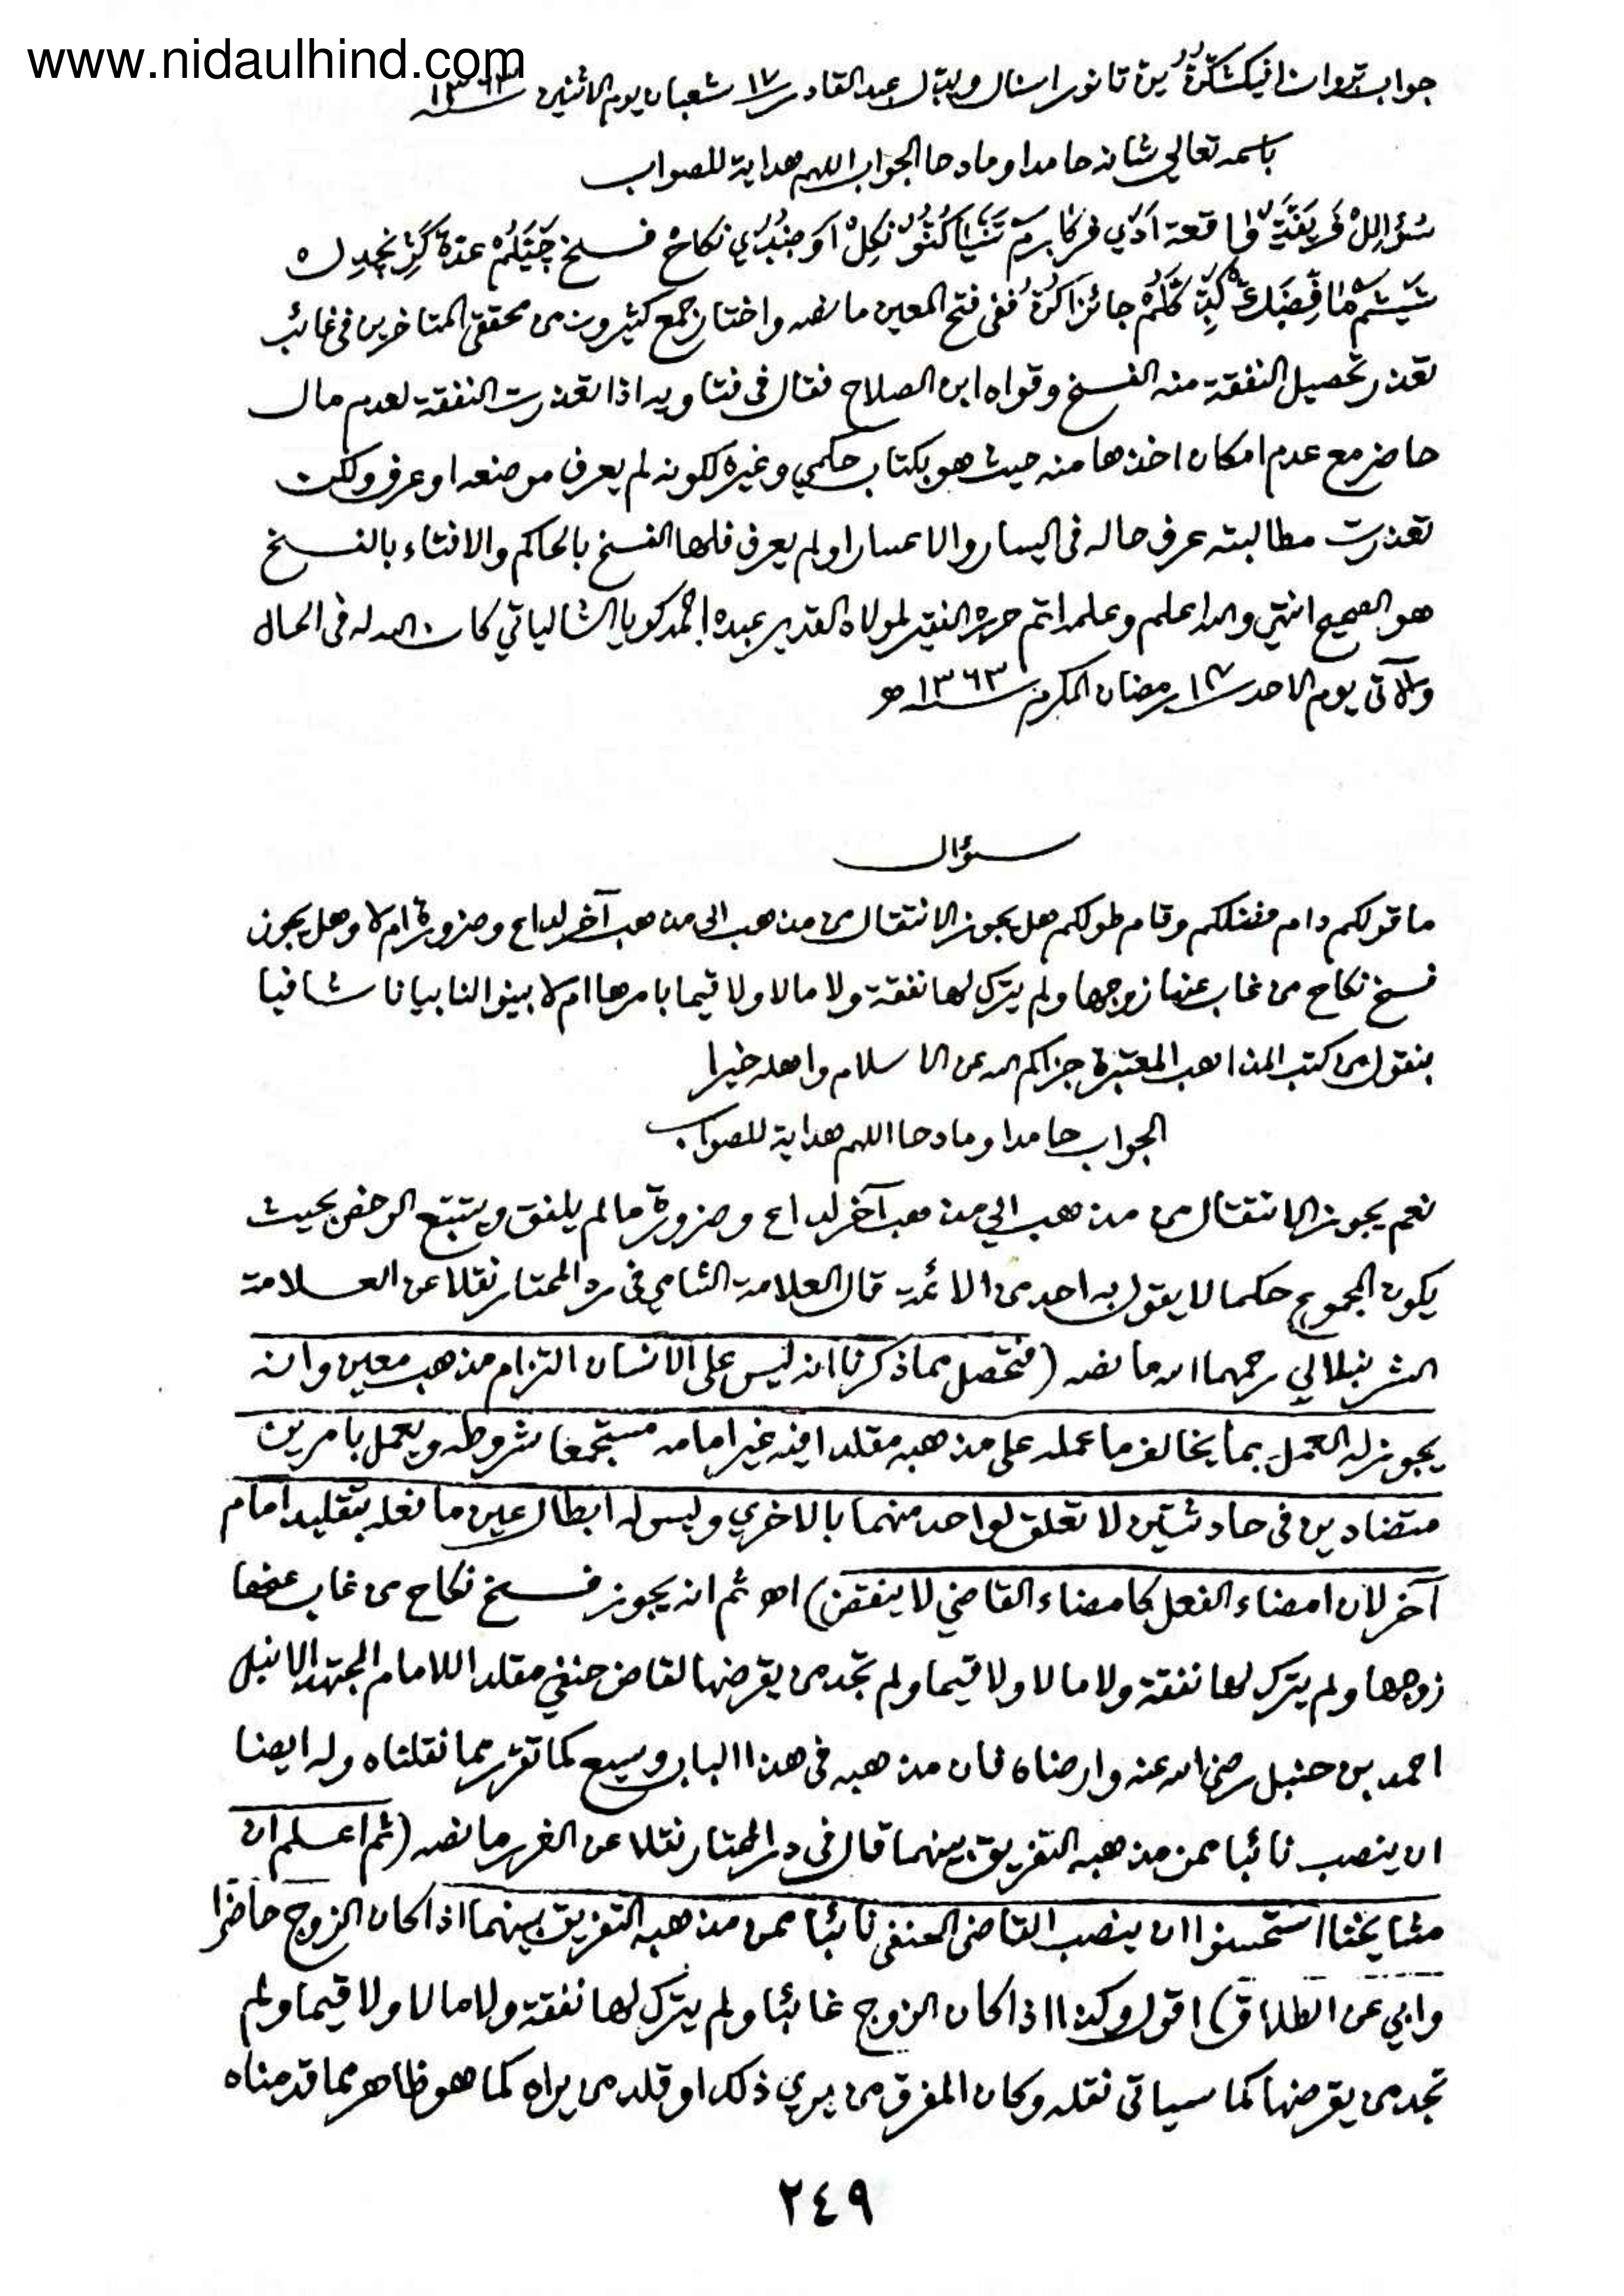 www.nidaulhind.com
جواب تانور عبد القادر ١٧ شعبان يوم الاثنين سنه ١٣٦٣
باسمه تعالى شانه حامدا ومادحا الجواب اللهم هداية للصواب
نكاح فسخ عدة
جائز ففى فتح المعين ما نصه واختار جمع كثيرون من محققى المتاخرين فى غائب
تعذر تحصيل النفقة منه الفسخ وقواه ابن الصلاح فقال فى فتاويه اذا تعذرت النفقة لعدم مال
حاضر مع عدم امكان اخذها منه حيث هو بكتاب حكمي وغيره لكونه لم يعرف موضعه او عرف ولكن
تعذرت مطالبته عرف حاله فى اليسار والاعسار او لم يعرف فلها الفسخ بالحاكم والافتاء بالفسخ
هو الصحيح انتهى والله اعلم وعلمه اتم حرره الفقير لمولاه القدير عبده احمد كويا الشالياتي كان الله له فى الحال
والآتى يوم الاحد ١٤ رمضان المكرم سنه ١٣٦٣ هـ
سؤال
ما قولكم دام فضلكم وقام طولكم هل يجوز الانتقال من مذهب الى مذهب آخر لداع وضرورة ام لا وهل يجوز
فسخ نكاح من غاب عنها زوجها ولم يترك لها نفقة ولا مالا ولا قيما بامرها ام لا بينوا لنا بيانا شافيا
بنقول من كتب المذاهب المعتبرة جزاكم الله عن الاسلام واهله خيرا
الجواب حامدا ومادحا اللهم هداية للصواب.
نعم يجوز الانتقال من مذهب الي مذهب آخر لداع وضرورة ما لم يلفق ويتتبع الرخص بحيث
يكون المجموع حكما لا يقول به احد من الائمة قال العلامة الشامي فى رد المحتار نقلا عن العلامة
الشرنبلالي رحمهما الله ما نصه (فتحصل مما ذكرنا انه ليس على الانسان التزام مذهب معين وانه
يجوز له العمل بما يخالف ما عمله على مذهبه مقلدا فيه غير امامه مستجمعا شروطه ويعمل بامرين
متضادين فى حادثتين لا تعلق لواحد منهما بالاخري وليس له ابطال عين ما فعله بتقليد امام
آخر لان امضاء الفعل كامضاء القاضي لا ينقض) اهـ ثم انه يجوز فسخ نكاح من غاب عنها
زوجها ولم يترك لها نفقة ولا مالا ولا قيما ولم تجد من يقرضها لقاض حنفي مقلدا للامام المجتهد الانبل
احمد بن حنبل رضى الله عنه وارضاه فان مذهبه فى هذا الباب وسيع كما تقرر مما نقلناه وله ايضا
ان ينصب نائبا ممن مذهبه التفريق بينهما قال فى در المحتار نقلا عن الغرر ما نصه (ثم اعلم ان
مشايخنا استحسنوا ان ينصب القاضى الحنفى نائبا ممن مذهبه التفريق بينهما اذا كان الزوج حاضرا
وابي عن الطلاق) اقول وكذا اذا كان الزوج غائبا ولم يترك لها نفقة ولا مالا ولا قيما ولم
تجد من يقرضها كما سياتى نقله وكان المفرق من يري ذلك او قلد من يراه كما هو ظاهر مما قدمناه
٢٤٩